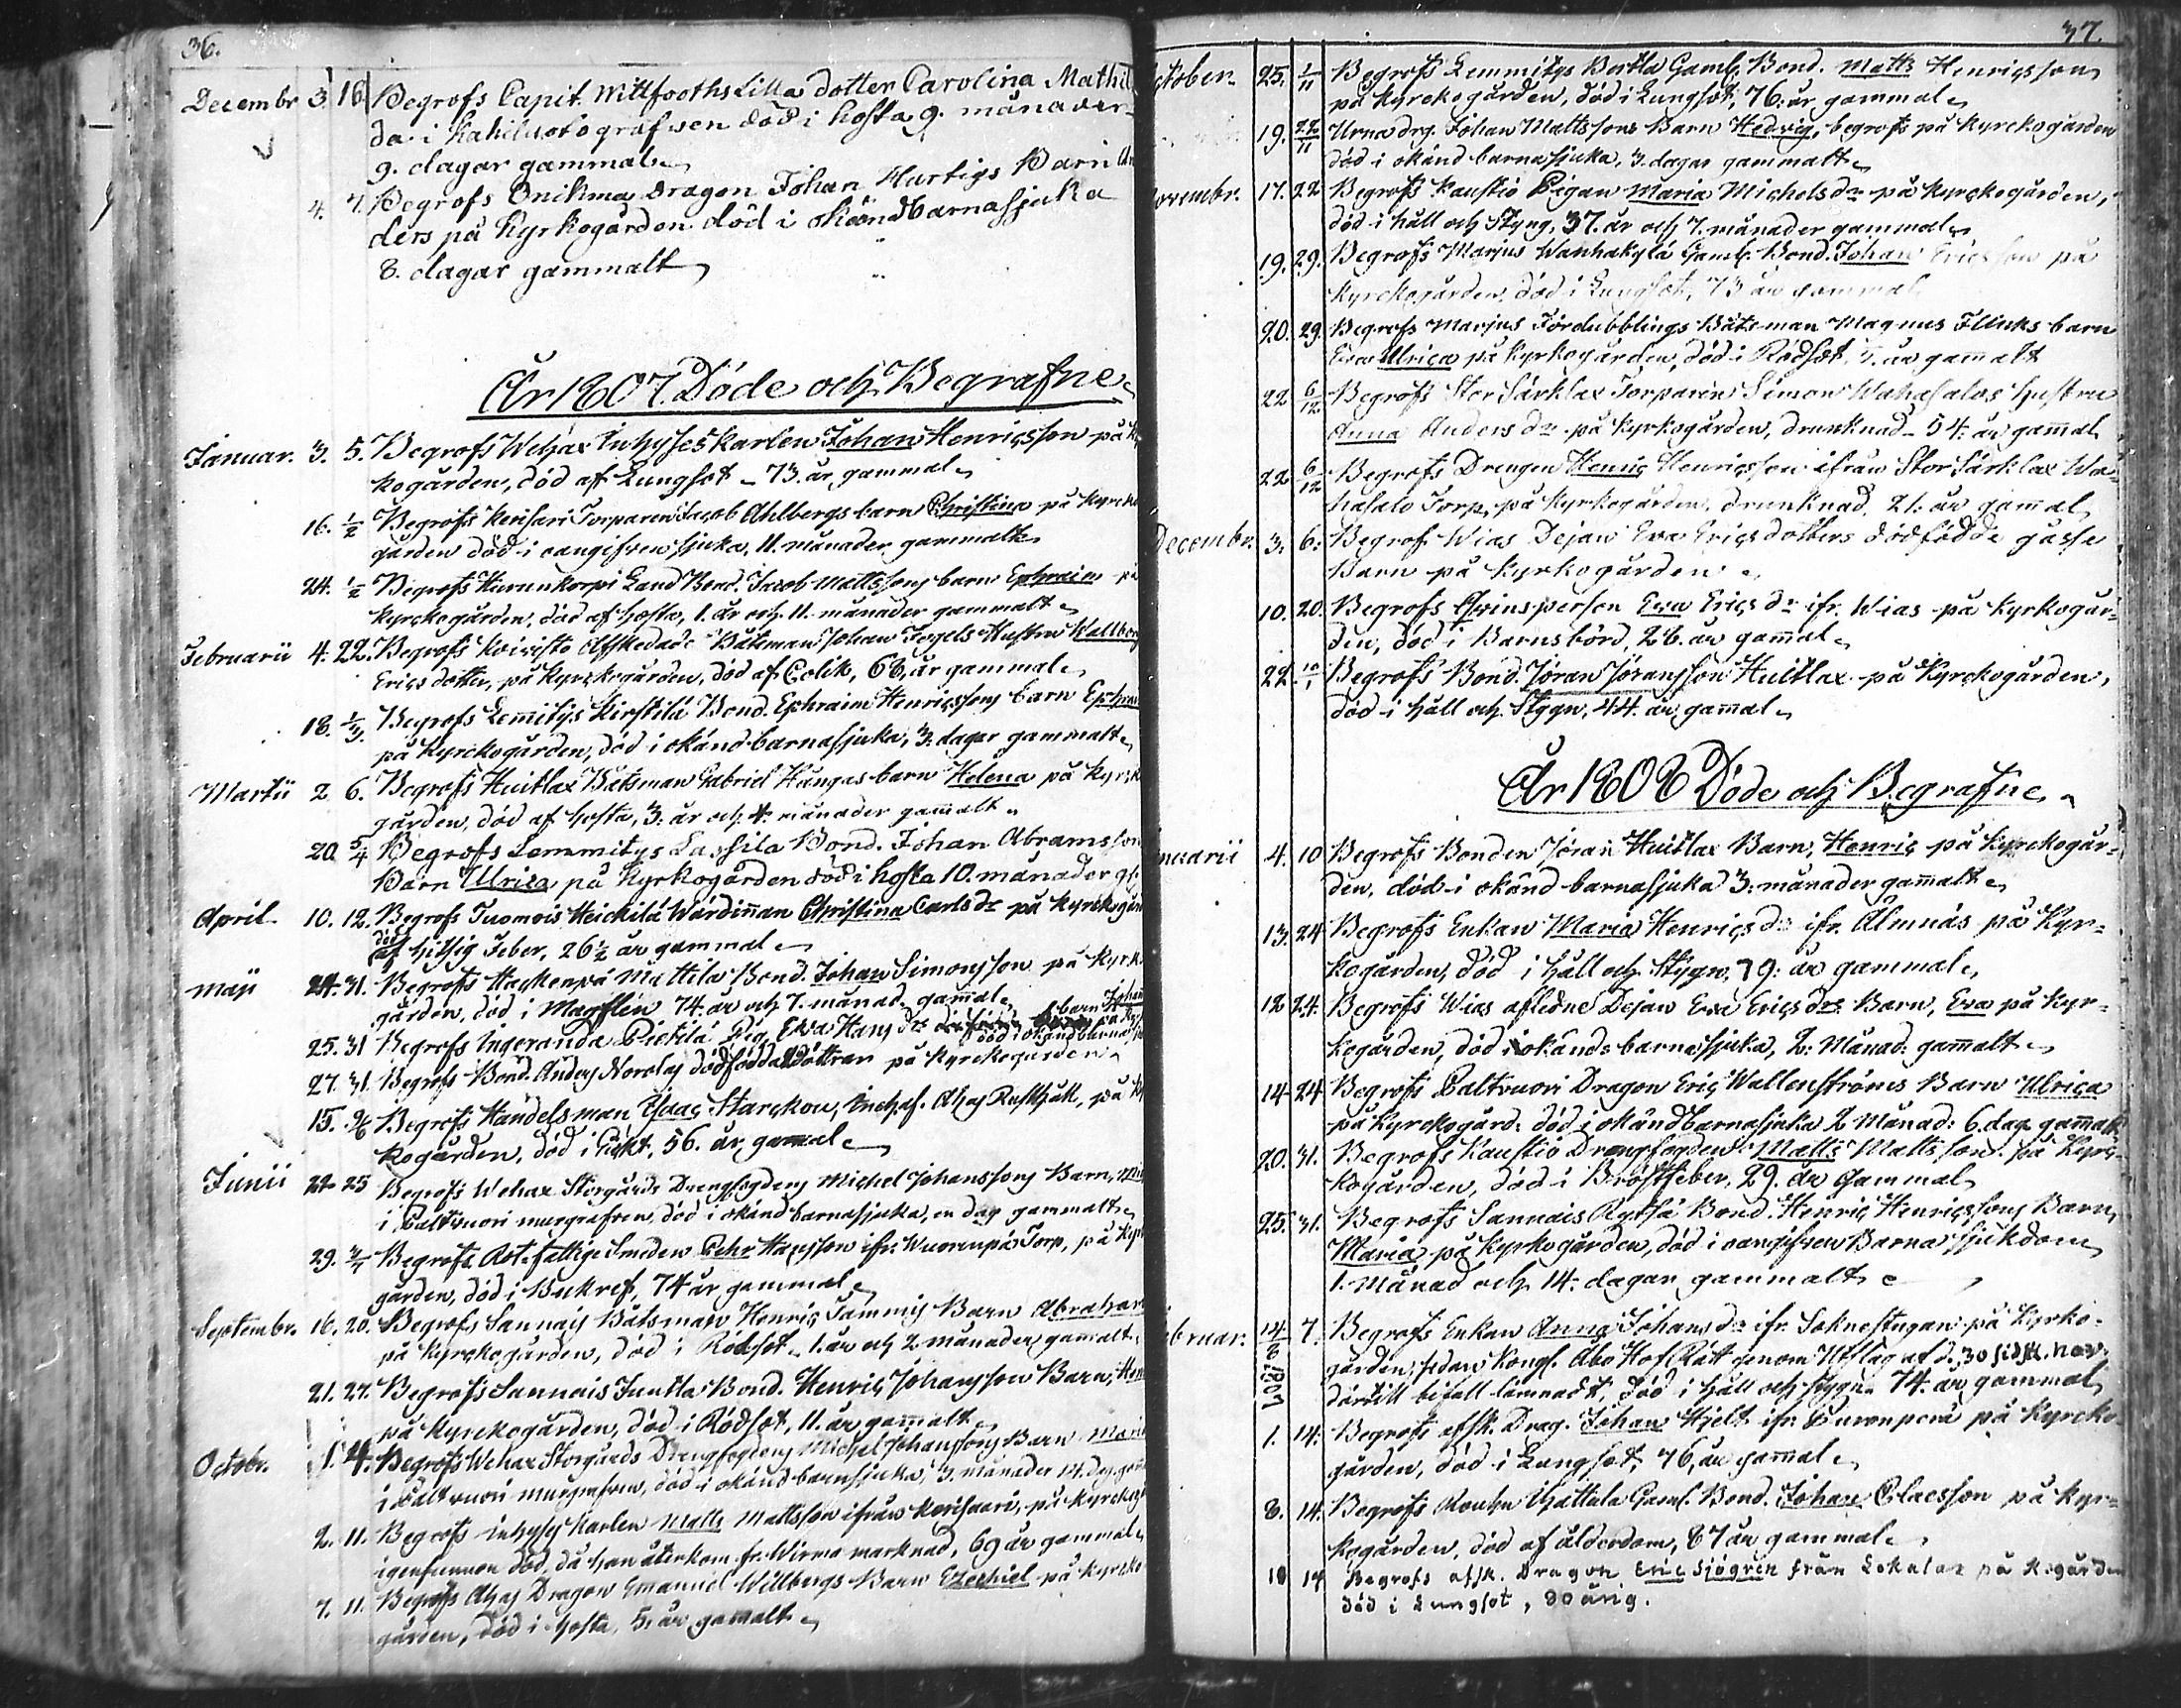 36.
Decembr 3. 16. Begrofs Capit. Wittfooths Lilla dotter Carolina Mathil
da i Kahiluoto grafwen död i hosta 9. månader
9. dagar gammal
4. 7. Begrofs Onikma Dragon Johan Hurtigs Barn An
ders på Kyrkogården död i okänd barnasjuka
8. dagar gammalt
År 1807. Döde och Begrafne
Januar. 3. 5. Begrofs Wehax Inhyseskarlen Johan Henricsson på Kyr
kogården, död af Lungsot 73. år gammal
16. 1/2 Begrofs Kerisari Torparen Jacob Ahlbergs barn Christina på Kyrcko
gården död i oangifven sjuka, 11. månader gammalt
24. 1/2 Begrofs Kurunkorpi Land Bond. Jacob Mattssons barn Ephraim på
Kyrckogården, död af hosta, 1. år och 11. månader gammalt
Februarii 4. 22. Begrofs Koivisto Afskedade Båtsman Johan Fogels Hustru Wallborg
Erics dotter, på Kyrckogården, död af Colik, 66. år gammal
18. 1/3. Begrofs Lemmitys Kirstilä Bond. Ephraim Henricssons barn Ephraim
på Kyrckogården, död i okänd barnasjuka, 3. dagar gammalt
Martii 2 6. Begrofs Huitlax Båtsman Gabriel Hungas barn Helena på Kyrck
gården, död af hosta, 3. år och 4. månader gammalt
20 5/4 Begrofs Lemmitys Lassila Bond. Johan Abramsson
Barn Ulrica på Kyrkogården död i hosta 10. månader gl.
April 10. 12. Begrofs Tuomois Heickilä Wärdinnan Christina Carlsdr på Kyrckogår
död af hitsig Feber, 26 1/2 år gammal
Maji 24. 31. Begrofs Hackenpä Mattila Bond. Johan Simonsson på Kyrk
gården, död i Magflen 74. år och 7. månad. gammal
25. 31 Begrofs Ingeranda Pietilä Pig. Ewa Hansdr barn Johan på Kyr
död i okänd barnasju
27. 31. Begrofs Bond. Anders Norolas dödfödda dottran på Kyrckogården
15. 9/6 Begrofs Handelsman Isaac Starckou, Inehaf. Ahas Rusthåll, på Ky
kogården, död i Gikt, 56. år gammal
Junii 22 25 Begrofs Wehax Storgårds Drengfogdens Michel Johanssons Barn,
i Paltvuori murgrafven, död i okänd barnasjuka, en dag gammalt
29. 3/7 Begrofs Rotefattige Smeden Pehr Hansson ifr. Wuorenpä Torp, på Kyr
gården, död i Bukref, 74 år gammal
Septembr. 16. 20. Begrofs Sannais Båtsman Henric Tammis Barn Abraham
på Kyrckogården, död i Rödsot 1. år och 2 månader gammalt
21. 27. Begrofs Sannais Juntla Bond. Henric Johansson Barn, Hen
på Kyrckogården, död i Rödsot, 11. år gammalt
Octobr. 1. 4. Begrofs Wehax Storgårds Drengfogdens Michel Johanssons Barn Maria
i Paltvuori murgrafven, död i okänd barnsjuka, 3. månader 14. dag. gam
2. 11. Begrofs inhyses Karlen Matts Mattsson ifrån Kerisaari, på Kyrckog
igenfunnen död, då han återkom fr. Wirmo marknad, 69 år gammal
7. 11. Begrofs Ahas Dragon Emanuel Willbergs Barn Ezechiel på Kyrcko
gården, död i hosta, 5. år gammalt
37.
ctober. 25. 1/11 Begrofs Lemmitys Bertla Gaml. Bond. Matts Henricsson
på Kyrckogården, död i Lungsot, 76. år gammal
19. 22/11 Urna drg. Johan Mattssons Barn Hedvig, begrofs på Kyrckogården
död i okänd barnasjuka, 3. dagar gammalt
ovembr. 17. 22 Begrofs Kaustio Pigan Maria Michelsdr på Kyrckogården,
död i håll och Styng, 37. år och 7. månader gammal
19. 29. Begrofs Marjus Wanhakylä Gaml. Bond. Johan Ericsson på
Kyrckogården, död i Lungsot, 73 år gammal
20. 29. Begrofs Marjus Fördubblings Båtsman Magnus Flinks barn
Ewa Ulrica på Kyrkogården, död i Rödsot, 7. år gammalt
22 6/12 Begrofs Stor Särklax Torparen Simon Wahasalos hustru
Anna Andersdr. på Kyrkogården, drunknad 54. år gammal
22 6/12 Begrofs Drengen Henric Henricsson ifrån Stor Särklax Wa
hasalo Torp, på Kyrkogården, drunknad 21. år gammal
Decembr. 3. 6. Begrof. Wias Dejan Ewa Ericsdotters dödfödde gåsse
Barn på Kyrkogården
10. 20. Begrofs Qvinsperson Ewa Ericsdr ifr. Wias på Kyrkogår
den, död i Barnsbörd, 26. år gammal
22. 10/1 Begrofs Bond. Jöran Jöransson Huitlax på Kyrckogården,
död i håll och Stygn, 44. år gammal
År 1808 Döde och Begrafne
nuarii 4. 10 Begrofs Bonden Jöran Huitlax Barn, Henric på Kyrckogår
den, död i okänd barnasjuka 3. månader gammalt
13. 24 Begrofs Enkan Maria Henricsdr ifr. Almnäs på Kyr
kogården, död i håll och Stygn, 79. år gammal
12 24. Begrofs Wias aflidne Dejan Ewa Ericsdrs Barn, Ewa på Kyr
kogården, död i okända barnasjuka, 2. Månad: gammalt
14 24 Begrofs Paltvuori Dragon Eric Wallenströms Barn Ulrica
på Kyrckogård. död i okänd barnasjuka 2 Månad: 6. dag. gammalt
20. 31. Begrofs Kaustio Drengfogden Matts Mattsson på Kyrc
kogården, död i Bröstfeber, 29. år gammal
25. 31. Begrofs Sannais Rytsä Bond. Henric Henricssons Barn,
Maria på Kyrkogården, död i oangifven Barnasjukdom
1. Månad och 14. dagar gammalt
bruar. 14/6 1807 7. Begrofs Enkan Anna Johansdr ifr. Soknestugan på Kyrko
gården, sedan Kongl. Åbo Hof Rätt genom Utslag af d. 30 sidstl. nov.
dertill bifall lämnadt, död i håll och stygn 74. år gammal
1. 14. Begrofs afsk. Drag. Johan Hjelt ifr. Puronperä på Kyrcko
gården, död i Lungsot, 76, år gammal
8. 14. Begrofs Rouhu Uhattala Gaml. Bond. Johan Claesson på Kyr
kogården, död af ålderdom, 87 år gammal
10 14 Begrofs afsk. Dragon Eric Sjögren från Lokalax på K.gården
död i Lungsot, 80 årig.